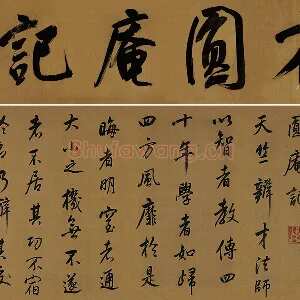 圓庵記
圓庵記
天竺辯才法師
以智者教傳四
十年學者如歸
四方風靡於是
晦者明窒者通
大小之機無不遂
者不居其功不宿
於名乃辭其交
Shufawang.cn